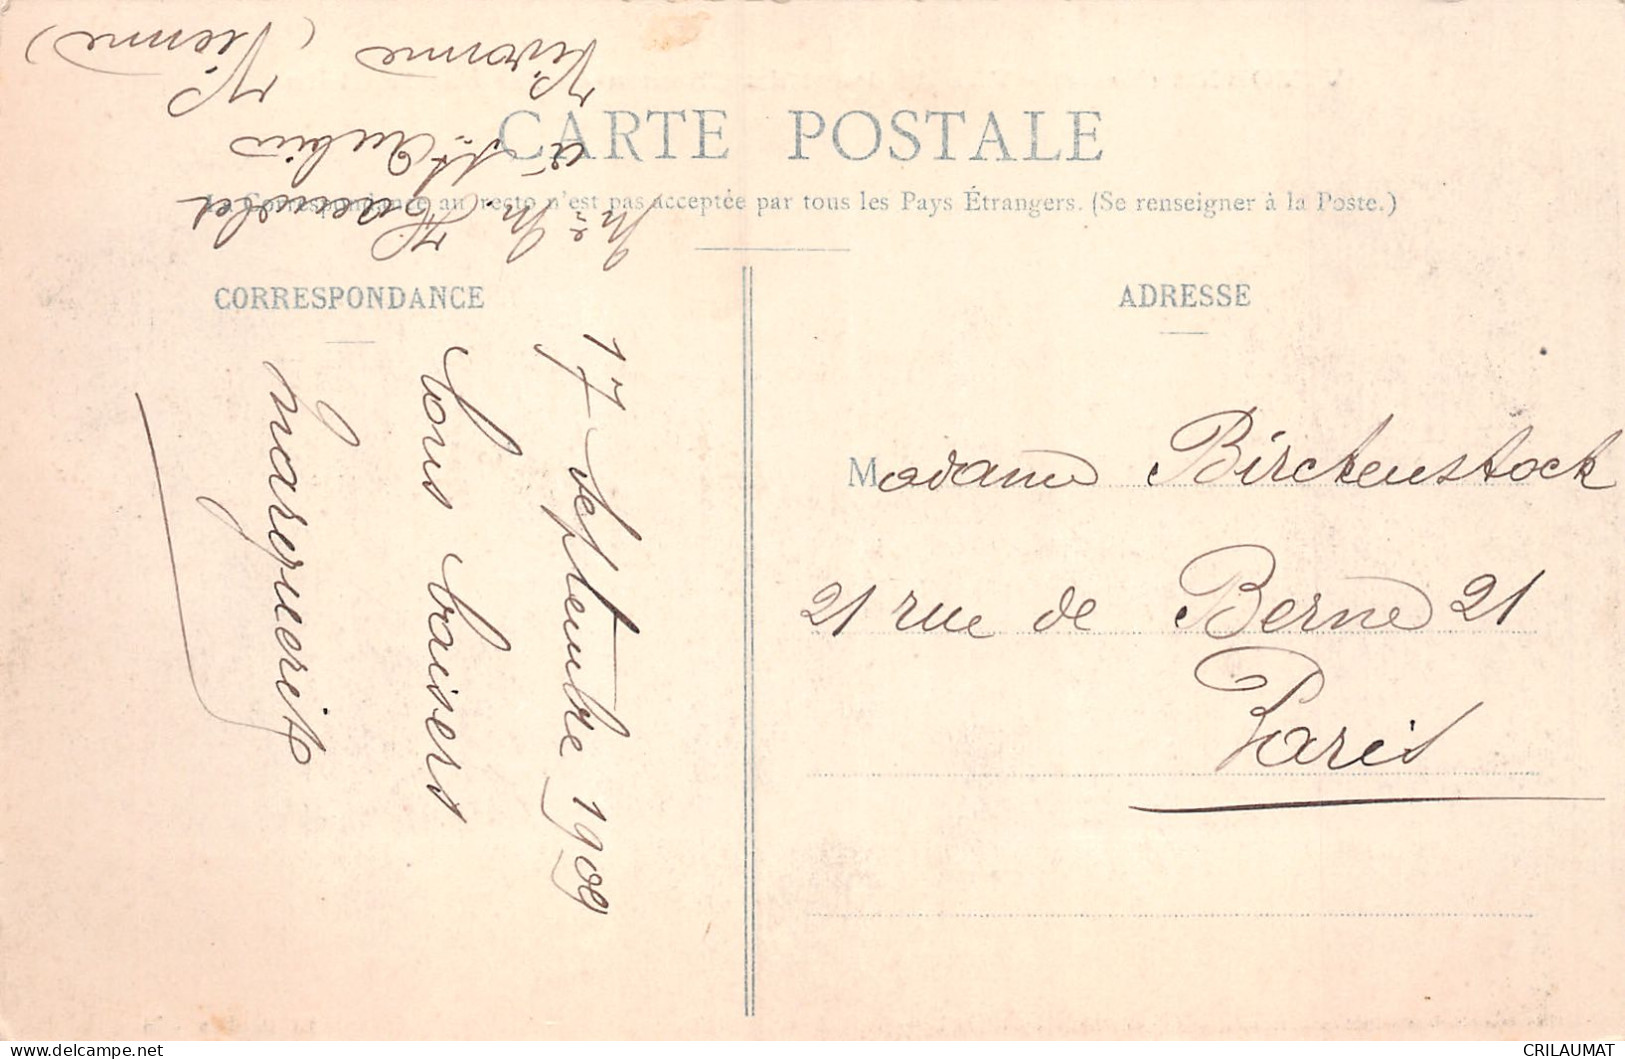 CARTE POSTALE
La Correspondance au recto n'est pas acceptée par tous les Pays Étrangers. (Se renseigner à la Poste.)
CORRESPONDANCE
17 Septembre 1909
bons baisers
Marguerite
à St Aubin
Vivonne (Vienne)
ADRESSE
Madame Birckenstock
21 rue de Berne 21
Paris
delcampe.net
CRILAUMAT